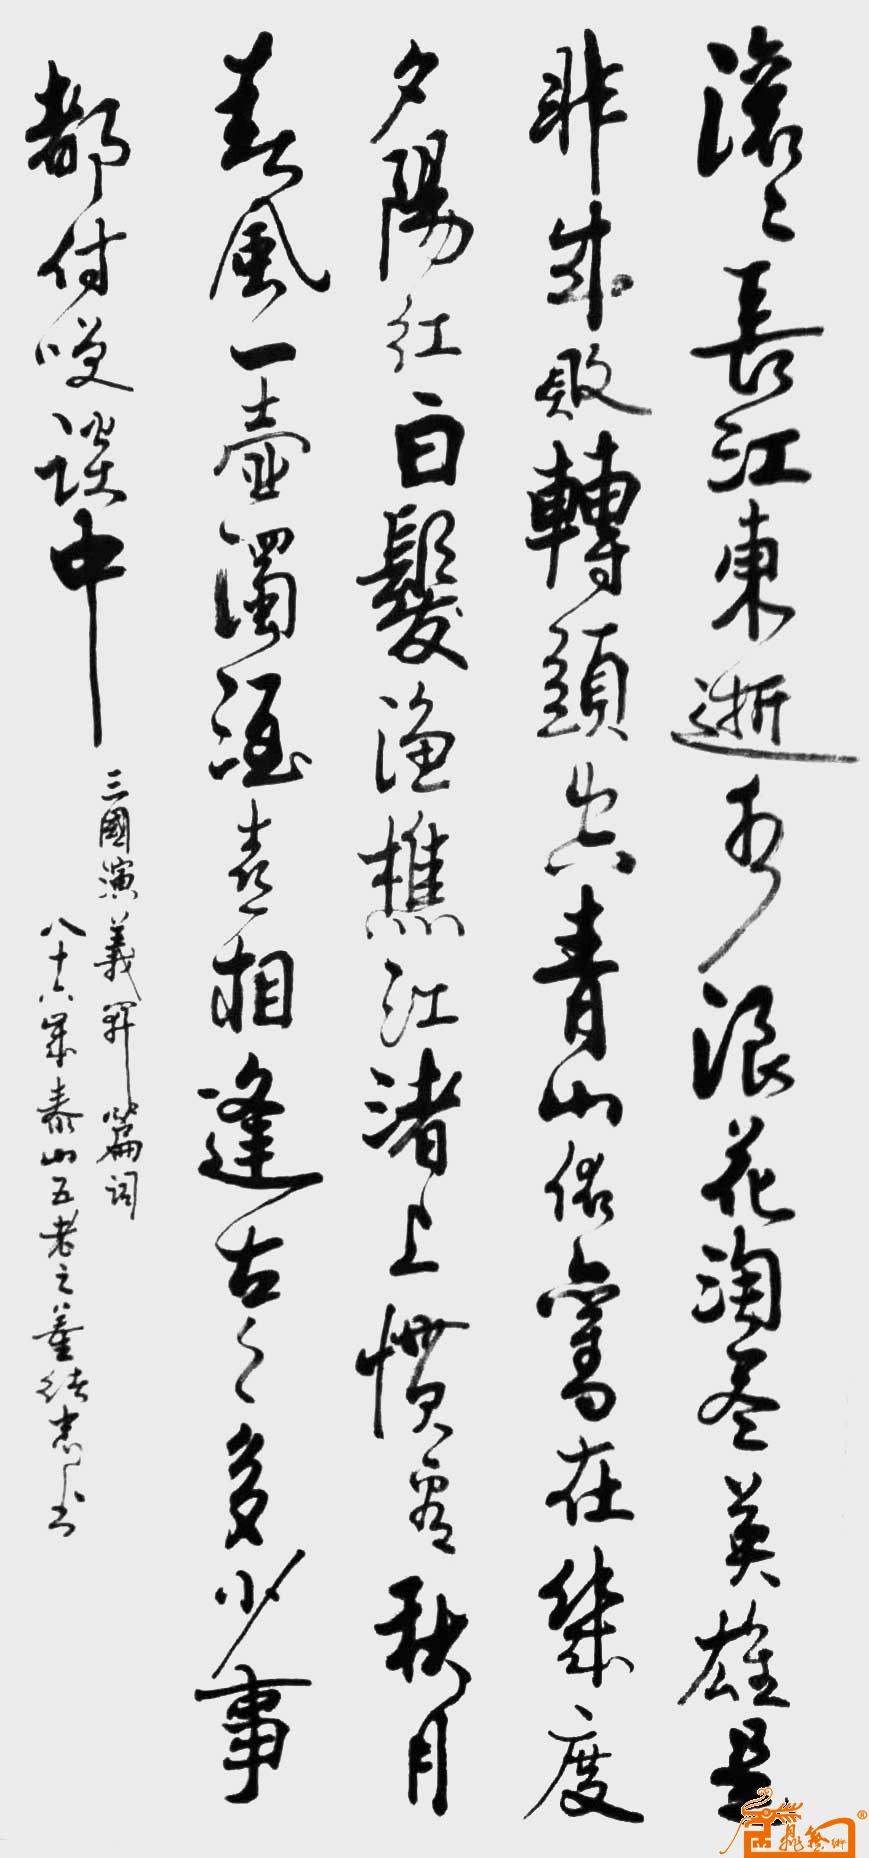 滾々長江東逝水浪花淘盡英雄是
非成敗轉頭空青山依舊在幾度
夕陽紅白髮漁樵江渚上慣看秋月
春風一壺濁酒喜相逢古今多少事
都付笑談中
三國演義開篇詞
八十六歲泰山五老之董